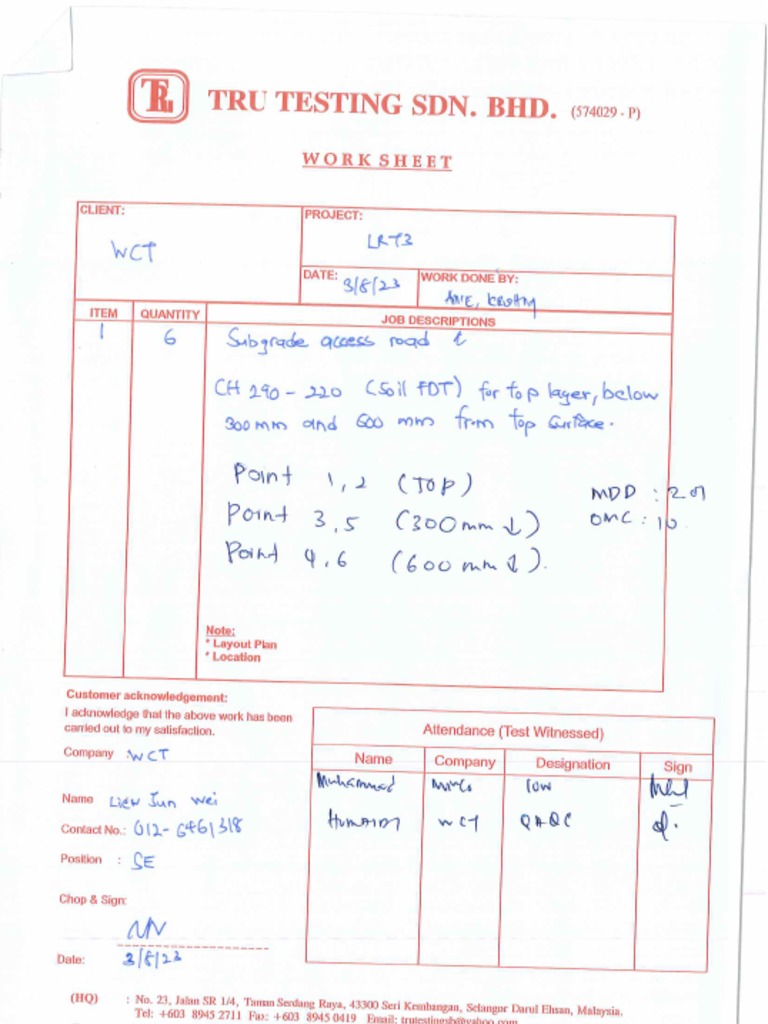 TRU TESTING SDN. BHD. (574029 - P)
WORK SHEET
CLIENT:
WCT
PROJECT:
LRT3
DATE: 3/8/23
WORK DONE BY:
ITEM QUANTITY JOB DESCRIPTIONS
1 6 Subgrade access road
CH 290 - 220 (Soil FDT) for top layer, below
300mm and 600 mm from top surface.
Point 1, 2 (TOP)
MDD : 2.01
Point 3, 5 (300mm ↓)
OMC : 10
Point 4, 6 (600mm ↓).
Note:
* Layout Plan
* Location
Customer acknowledgement:
I acknowledge that the above work has been
carried out to my satisfaction.
Company : WCT
Name Liew Jun Wei
Contact No.: 012-6461318
Position : SE
Chop & Sign:
Date: 3/8/23
Attendance (Test Witnessed)
Name Company Designation Sign
Muhammad IOW
HUMAIDI WCT QAQC
(HQ) : No. 23, Jalan SR 1/4, Taman Serdang Raya, 43300 Seri Kembangan, Selangor Darul Ehsan, Malaysia.
Tel: +603 8945 2711 Fax: +603 8945 0419 Email: trutestingsb@yahoo.com